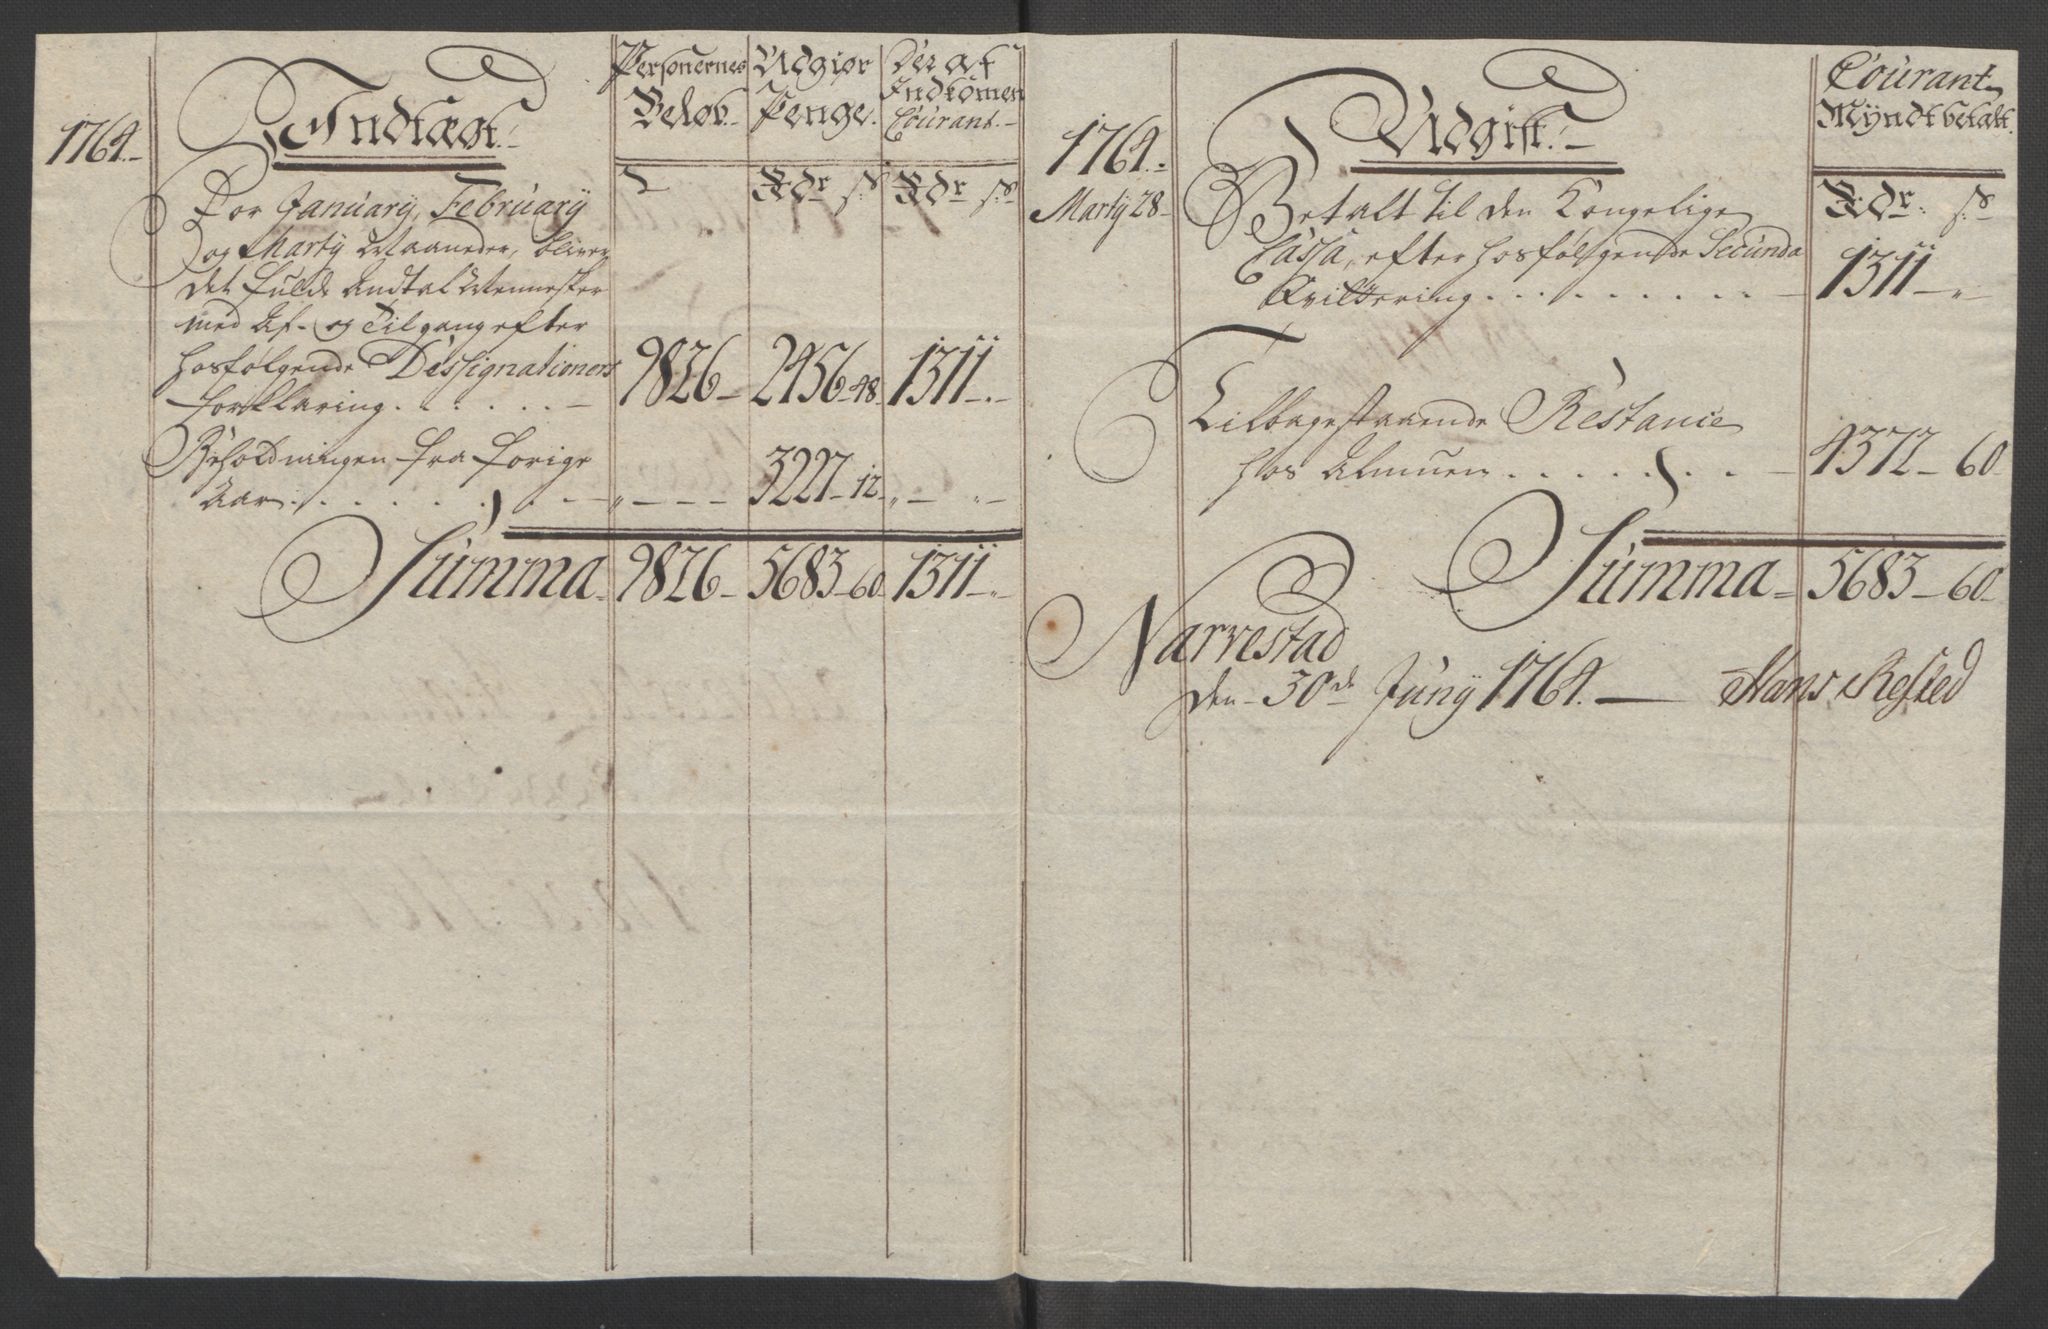 1764.
Indtægt.
Personernes
Beløb.
Udgiør
Penge.
Der af
Indkomen
Courant.
Rdr s. Rdr s.
For January, February
og Marty Maaneder, bliver
det fulde Andtal Mennesker
med Af- og Tilgang efter
hosfølgende Dessignationers
forklaring. . . . . . 9826 - 2456 - 48. 1311 - "
Beholdningen fra forige
Aar . . . . . . . . " - - - 3227 - 12. " - "
Summa 9826 - 5683 - 60. 1311 - "
1764.
Udgift.
Courant
Myndt betalt.
Rdr. s.
Marty 28 Betalt til den Kongelige
Cassa, efter hosfølgende Secunda
Qvittering . . . . . . . . . 1311 - "
Tilbagestaaende Restance
hos Almuen . . . . . . . . 4372 - 60.
Summa 5683 - 60.
Narvestad
den 30de Juny 1764. Hans Rested